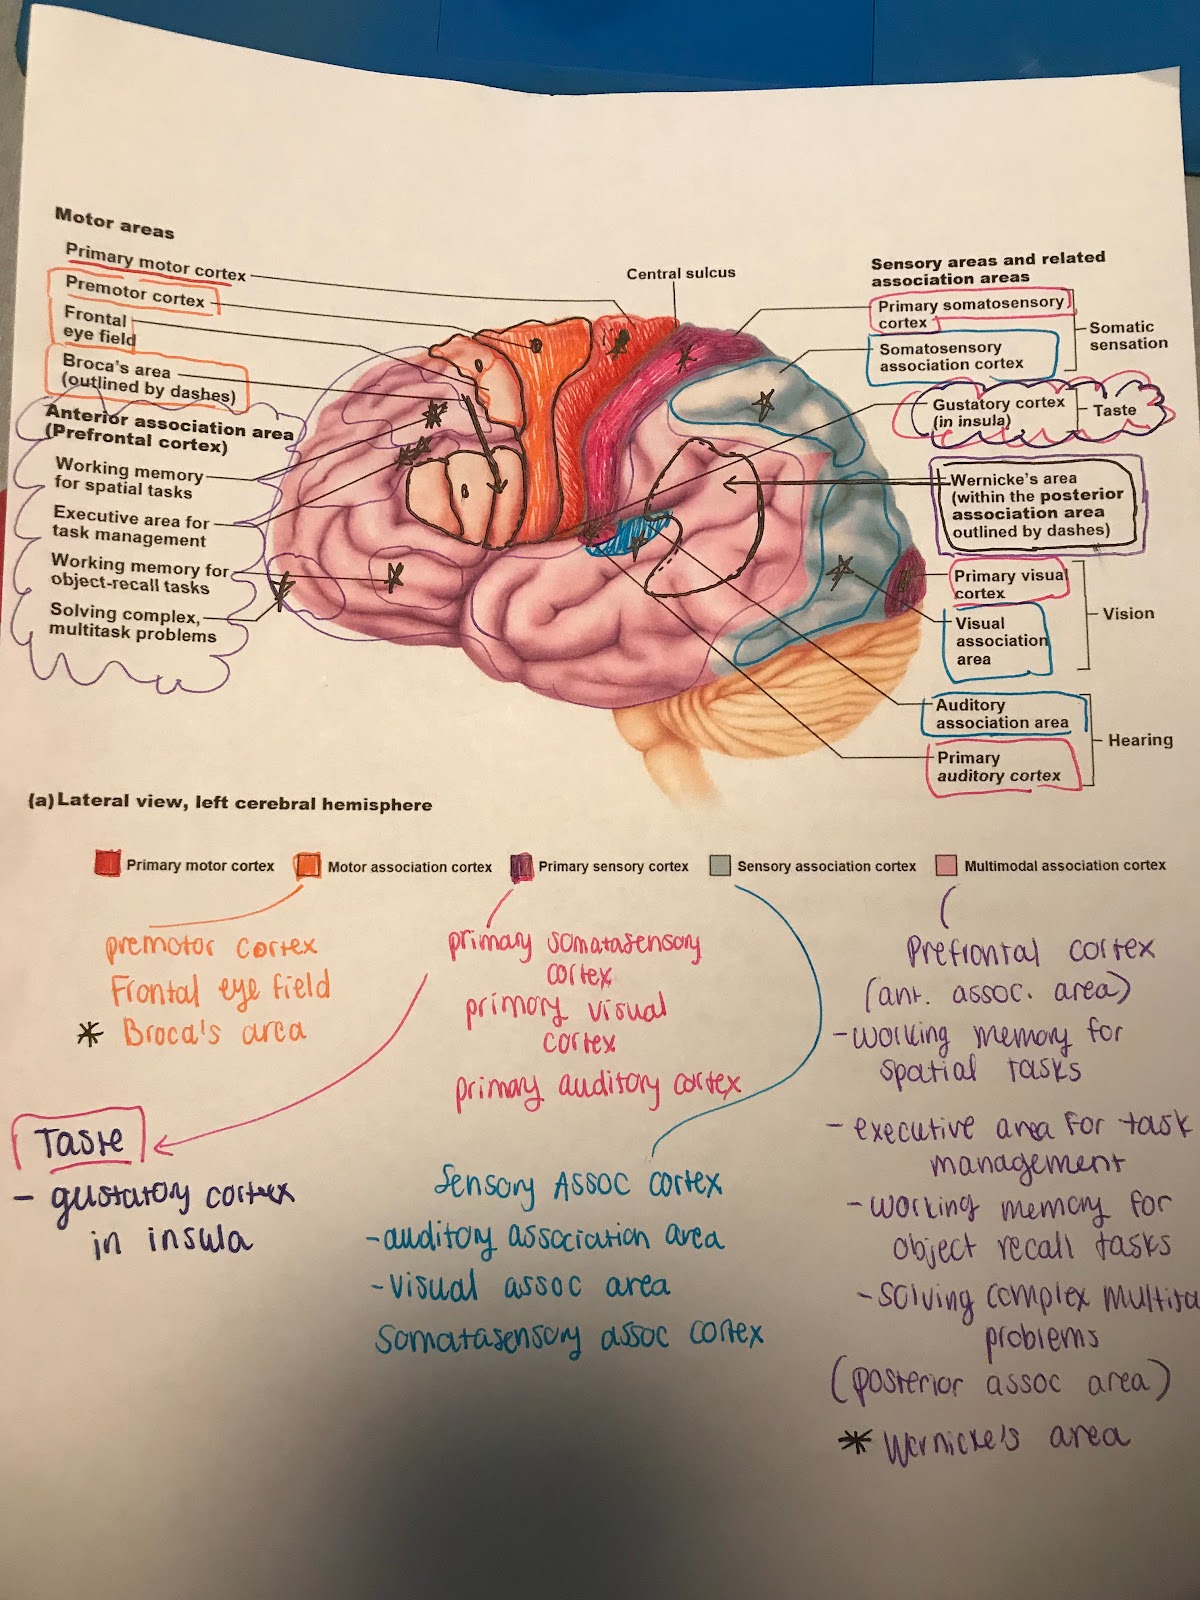 Motor areas
Primary motor cortex
Premotor cortex
Frontal
eye field
Broca's area
(outlined by dashes)
Anterior association area
(Prefrontal cortex)
Working memory
for spatial tasks
Executive area for
task management
Working memory for
object-recall tasks
Solving complex,
multitask problems
Central sulcus
Sensory areas and related
association areas
Primary somatosensory
cortex
Somatosensory
association cortex
Somatic
sensation
Gustatory cortex
(in insula)
Taste
Wernicke's area
(within the posterior
association area
outlined by dashes)
Primary visual
cortex
Visual
association
area
Vision
Auditory
association area
Primary
auditory cortex
Hearing
(a) Lateral view, left cerebral hemisphere
Primary motor cortex
Motor association cortex
Primary sensory cortex
Sensory association cortex
Multimodal association cortex
premotor cortex
Frontal eye field
* Broca's area
primary somatasensory
cortex
primary visual
cortex
primary auditory cortex
Taste
- gustatory cortex
in insula
Sensory Assoc cortex
- auditory association area
- visual assoc area
somatasensory assoc cortex
Prefrontal cortex
(ant. assoc. area)
- working memory for
spatial tasks
- executive area for task
management
- working memory for
object recall tasks
- solving complex multita
problems
(posterior assoc area)
* Wernicke's area